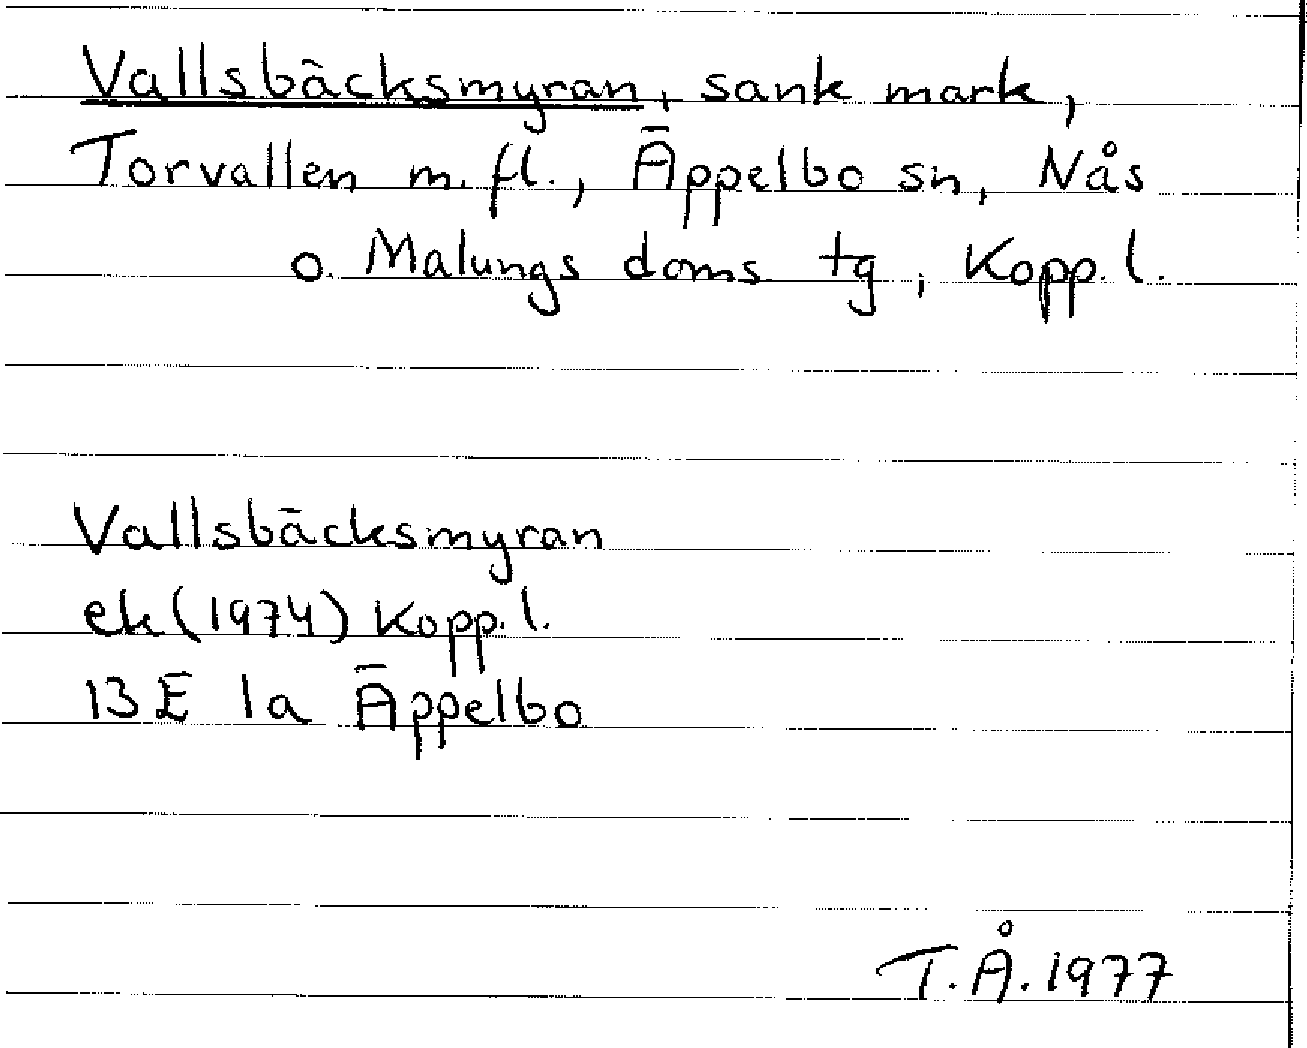 Vallsbäcksmyran, sank mark,
Torvallen m.fl., Äppelbo sn, Nås
o. Malungs doms tg, Kopp.l.
Vallsbäcksmyran
ek (1974) Kopp.l.
13E 1a Äppelbo
T.Å.1977